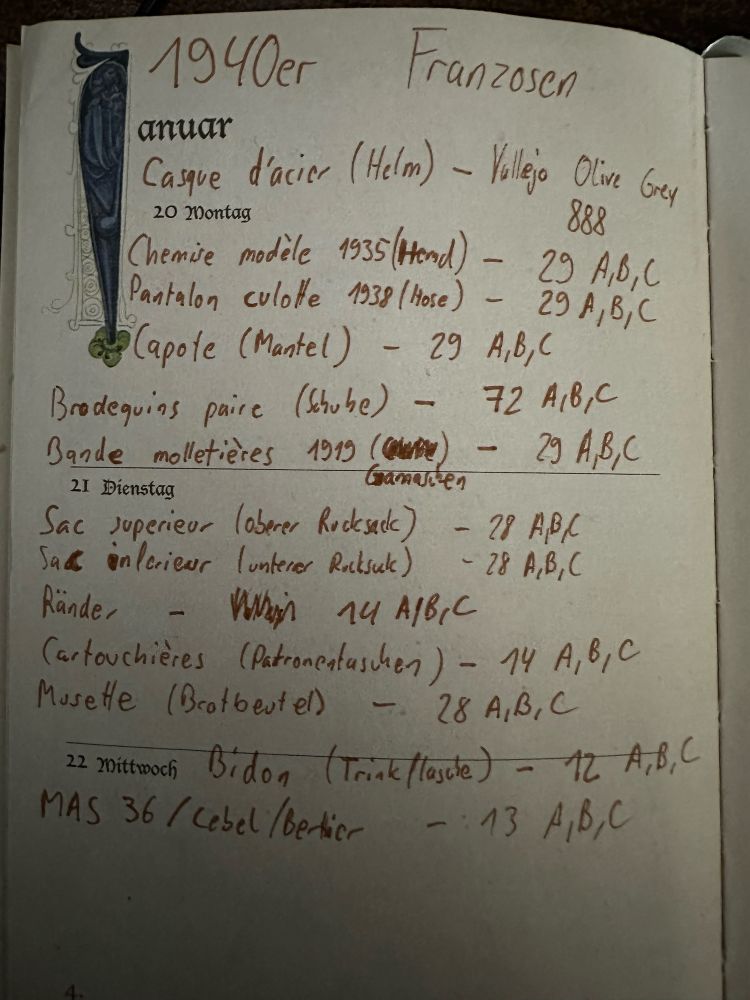 1940er Franzosen
Januar
Casque d'acier (Helm) – Vallejo Olive Grey
888
20 Montag
Chemise modèle 1935 (Hemd) – 29 A,B,C
Pantalon culotte 1938 (Hose) – 29 A,B,C
Capote (Mantel) – 29 A,B,C
Brodequins paire (Schuhe) – 72 A,B,C
Bande molletières 1919 ( ) – 29 A,B,C
Gamaschen
21 Dienstag
Sac superieur (oberer Rucksack) – 28 A,B,C
Sac inferieur (unterer Rucksack) – 28 A,B,C
Ränder – 14 A,B,C
Cartouchières (Patronentaschen) – 14 A,B,C
Musette (Brotbeutel) – 28 A,B,C
22 Mittwoch Bidon (Trinkflasche) – 12 A,B,C
MAS 36 / Lebel / Berthier – 13 A,B,C
4.